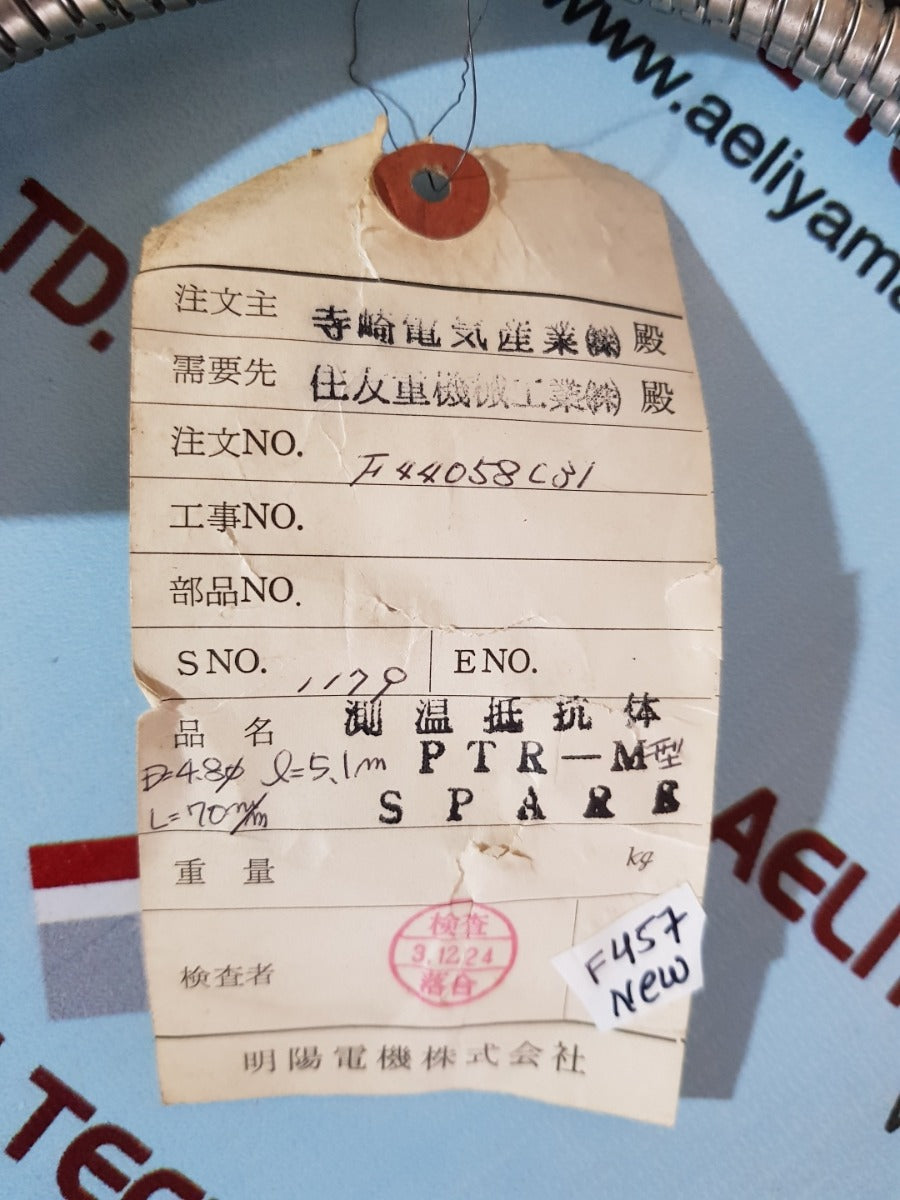 www.aeliyama
TD.
注文主 寺崎電気産業㈱ 殿
需要先 住友重機械工業㈱ 殿
注文NO. F44058C31
工事NO.
部品NO.
S NO. 1179 E NO.
品 名 測 温 抵 抗 体
D=4.8φ l=5.1m PTR-M型
L=70m/m SPARE
重 量 kg
検査者
検査
3.12.24
落合
F457
New
明陽電機株式会社
AELI
TEC